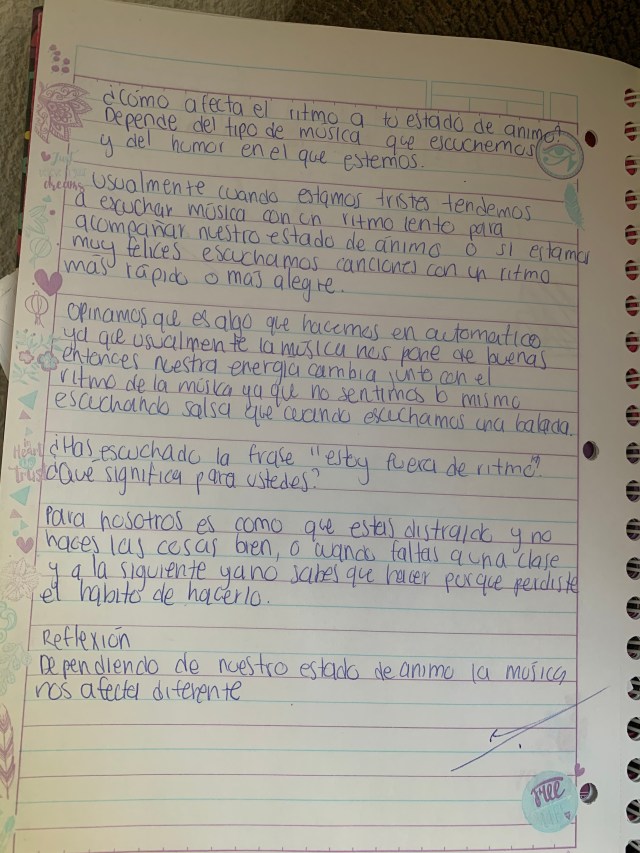 ¿Cómo afecta el ritmo a tu estado de animo?
Depende del tipo de música que escuchemos
y del humor en el que estemos.
Usualmente cuando estamos tristes tendemos
a escuchar música con un ritmo lento para
acompañar nuestro estado de ánimo o si estamos
muy felices escuchamos canciones con un ritmo
más rápido o mas alegre.
Opinamos que es algo que hacemos en automatico
ya que usualmente la música nos pone de buenas
entonces nuestra energía cambia junto con el
ritmo de la música ya que no sentimos lo mismo
escuchando salsa que cuando escuchamos una balada.
¿Has escuchado la frase "estoy fuera de ritmo"?
¿Que significa para ustedes?
Para nosotros es como que estas distraido y no
haces las cosas bien, o cuando faltas a una clase
y a la siguiente ya no sabes que hacer porque perdiste
el habito de hacerlo.
Reflexión
Dependiendo de nuestro estado de animo la música
nos afecta diferente
dreams
Heart
Trust
Free